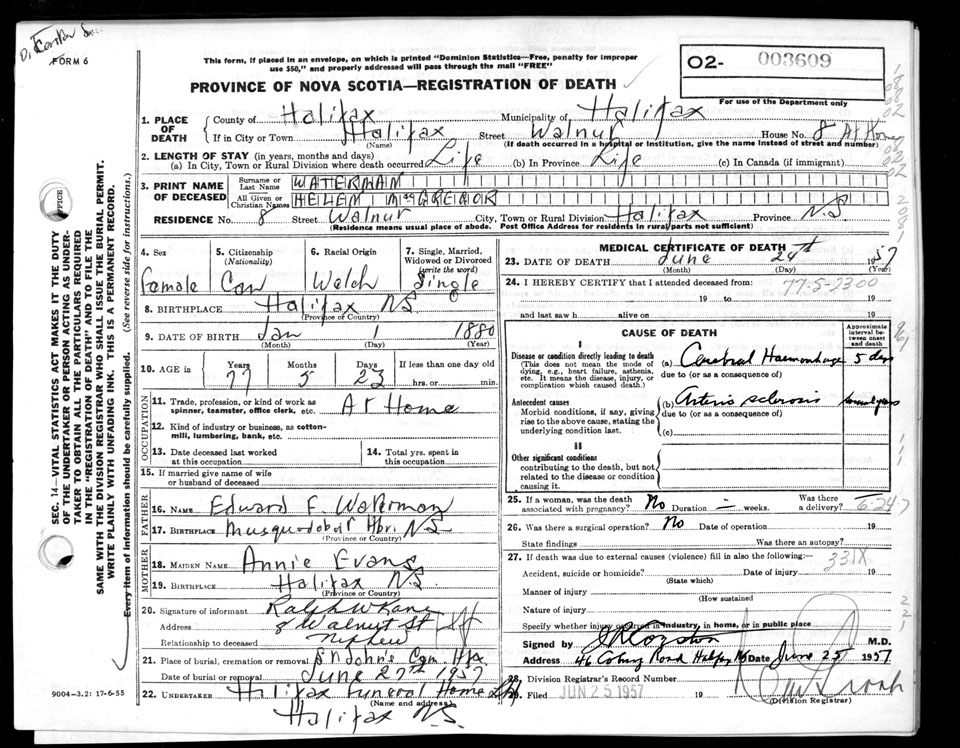 FORM 6
This form, if placed in an envelope, on which is printed "Dominion Statistics—Free, penalty for improper
use $50," and properly addressed will pass through the mail "FREE"
PROVINCE OF NOVA SCOTIA—REGISTRATION OF DEATH
02- 003609
For use of the Department only
1. PLACE OF DEATH
County of Halifax Municipality of Halifax
If in City or Town Halifax Street Walnut House No. 8 At Home
(Name) (If death occurred in a hospital or institution, give the name instead of street and number)
2. LENGTH OF STAY (in years, months and days)
(a) In City, Town or Rural Division where death occurred Life (b) In Province Life (c) In Canada (if immigrant)
3. PRINT NAME OF DECEASED
Surname or Last Name WATERMAN
All Given or Christian Names HELEN MacGREGOR
RESIDENCE No. 8 Street Walnut City, Town or Rural Division Halifax Province N.S
(Residence means usual place of abode. Post Office Address for residents in rural parts not sufficient)
4. Sex Female
5. Citizenship (Nationality) Can
6. Racial Origin Welch
7. Single, Married, Widowed or Divorced (write the word) Single
8. BIRTHPLACE Halifax N.S.
(Province or Country)
9. DATE OF BIRTH Jan 1 1880
(Month) (Day) (Year)
10. AGE in Years 77 Months 5 Days 23 If less than one day old
hrs. or min.
OCCUPATION
11. Trade, profession, or kind of work as spinner, teamster, office clerk, etc. At Home
12. Kind of industry or business, as cotton-mill, lumbering, bank, etc.
13. Date deceased last worked at this occupation
14. Total yrs. spent in this occupation
15. If married give name of wife or husband of deceased
FATHER
16. NAME Edward F. Waterman
17. BIRTHPLACE Musquodoboit Hbr. N.S
(Province or Country)
MOTHER
18. MAIDEN NAME Annie Evans
19. BIRTHPLACE Halifax N.S.
(Province or Country)
20. Signature of informant Ralph W Kane
Address 8 Walnut St
Relationship to deceased Nephew
21. Place of burial, cremation or removal St John's Cem. Hfx
Date of burial or removal June 27th 1957
22. UNDERTAKER Halifax Funeral Home
(Name and address)
Halifax N.S.
MEDICAL CERTIFICATE OF DEATH
23. DATE OF DEATH June 24th 1957
(Month) (Day) (Year)
24. I HEREBY CERTIFY that I attended deceased from:
77-5-2300
19 to 19
and last saw h alive on 19
CAUSE OF DEATH
Approximate interval between onset and death
I
Disease or condition directly leading to death
(This does not mean the mode of dying, e.g., heart failure, asthenia, etc. It means the disease, injury, or complication which caused death.)
(a) Cerebral Haemorrhage 5 days
due to (or as a consequence of)
Antecedent causes
Morbid conditions, if any, giving rise to the above cause, stating the underlying condition last.
(b) Arterio sclerosis several years
due to (or as a consequence of)
(c)
II
Other significant conditions
contributing to the death, but not related to the disease or condition causing it.
25. If a woman, was the death associated with pregnancy? No Duration — weeks. Was there a delivery?
6-24-7
26. Was there a surgical operation? No Date of operation 19
State findings Was there an autopsy?
27. If death was due to external causes (violence) fill in also the following:
331X
Accident, suicide or homicide? Date of injury 19
(State which)
Manner of injury
(How sustained
Nature of injury
Specify whether injury occurred in industry, in home, or in public place
Signed by M.D.
Address 46 Coburg Road Halifax NS Date June 25 1957
28. Division Registrar's Record Number
29. Filed JUN 25 1957 19
(Division Registrar)
9004-3.2: 17-6-55
SEC. 14—VITAL STATISTICS ACT MAKES IT THE DUTY
OF THE UNDERTAKER OR PERSON ACTING AS UNDER-
TAKER TO OBTAIN ALL THE PARTICULARS REQUIRED
IN THE "REGISTRATION OF DEATH" AND TO FILE THE
SAME WITH THE DIVISION REGISTRAR WHO SHALL ISSUE THE BURIAL PERMIT.
WRITE PLAINLY WITH UNFADING INK. THIS IS A PERMANENT RECORD.
Every item of information should be carefully supplied. (See reverse side for instructions.)